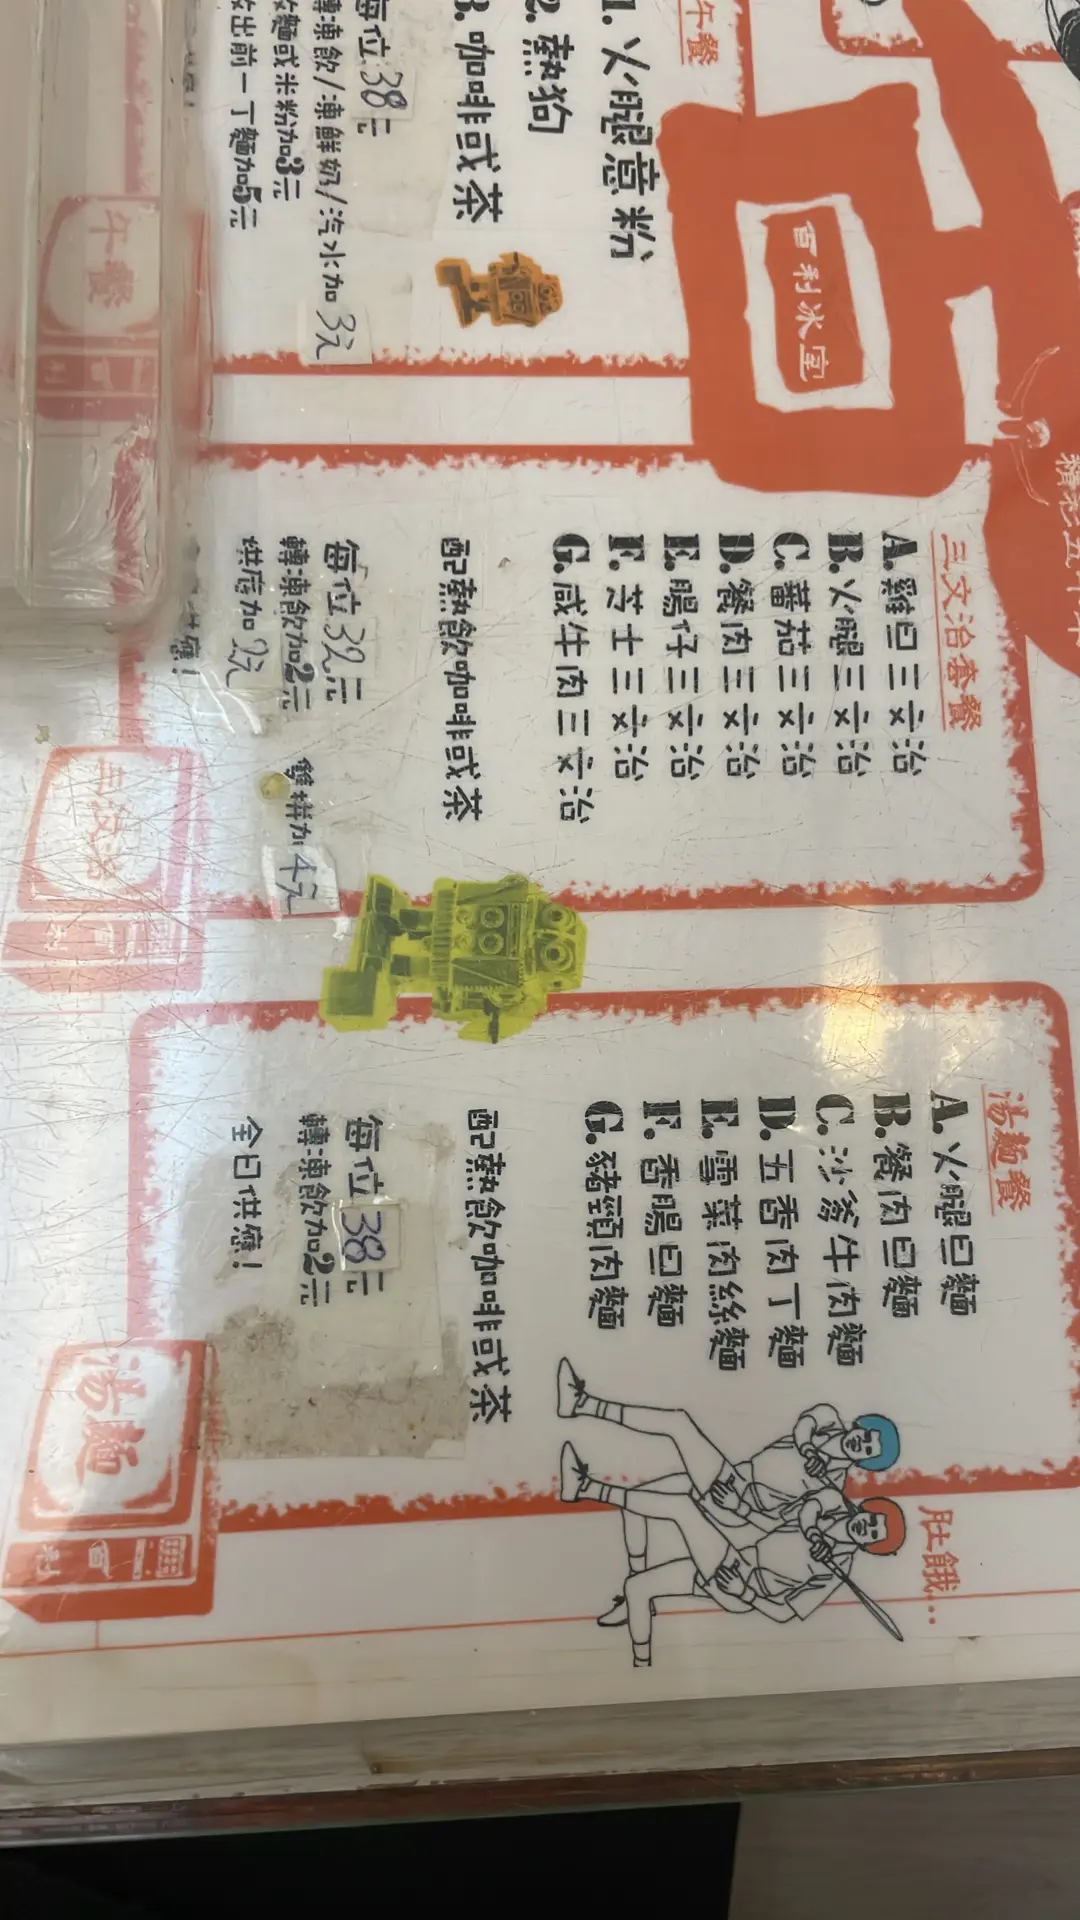 百利冰室
午餐
1. 火腿意粉
2. 熱狗
3. 咖啡或茶
每位38元
轉凍飲/凍鮮奶/汽水加3元
麵或米粉加3元
出前一丁麵加5元
午餐
三文治套餐
A. 雞旦三文治
B. 火腿三文治
C. 蕃茄三文治
D. 餐肉三文治
E. 腸仔三文治
F. 芝士三文治
G. 咸牛肉三文治
配熱飲咖啡或茶
每位32元
轉凍飲加2元 雙拼加4元
烘底加2元
湯麵餐
A. 火腿旦麵
B. 餐肉旦麵
C. 沙爹牛肉麵
D. 五香肉丁麵
E. 雪菜肉絲麵
F. 香腸旦麵
G. 豬頸肉麵
配熱飲咖啡或茶
每位38元
轉凍飲加2元
全日供應!
湯麵
百利
肚餓...